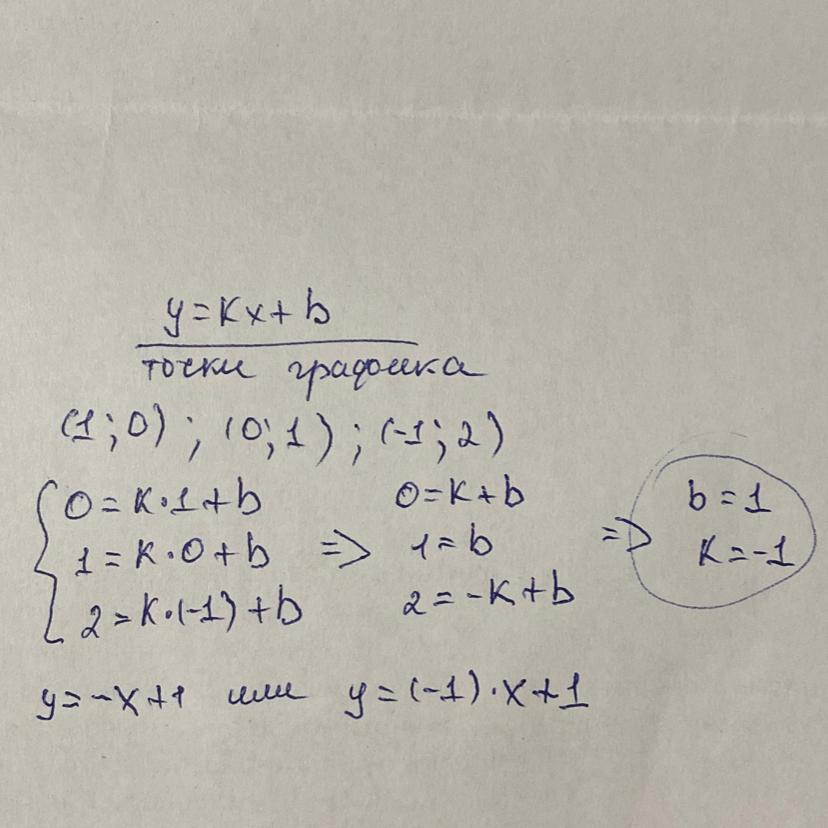 y=kx+b
точки графика
(1;0); (0;1); (-1;2)
0=k·1+b
1=k·0+b
2=k·(-1)+b
=>
0=k+b
1=b
2=-k+b
=>
b=1
k=-1
y=-x+1 или y=(-1)·x+1